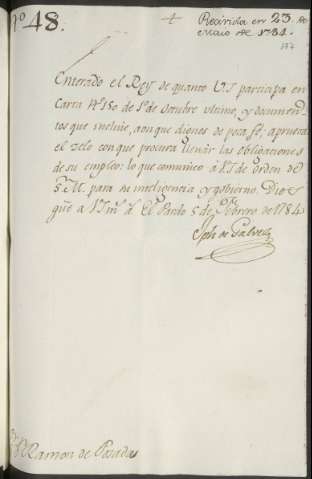 Nº 48.
Recivida en 23 de
Maio de 1784.
Enterado el Rey de quanto VS participa en
Carta Nº 180 de 1º de Octubre ultimo, y documen-
tos que incluie, aunque dignos de poca fe; aprueva
el zelo con que procura llenar las obligaciones
de su empleo: lo que comunico á VS de orden de
S. M. para su inteligencia y govierno. Dios
gũe á VS mˢ aˢ El Pardo 5 de Febrero de 1784
Jph de Galvez
Sʳ Dⁿ Ramon de Posada